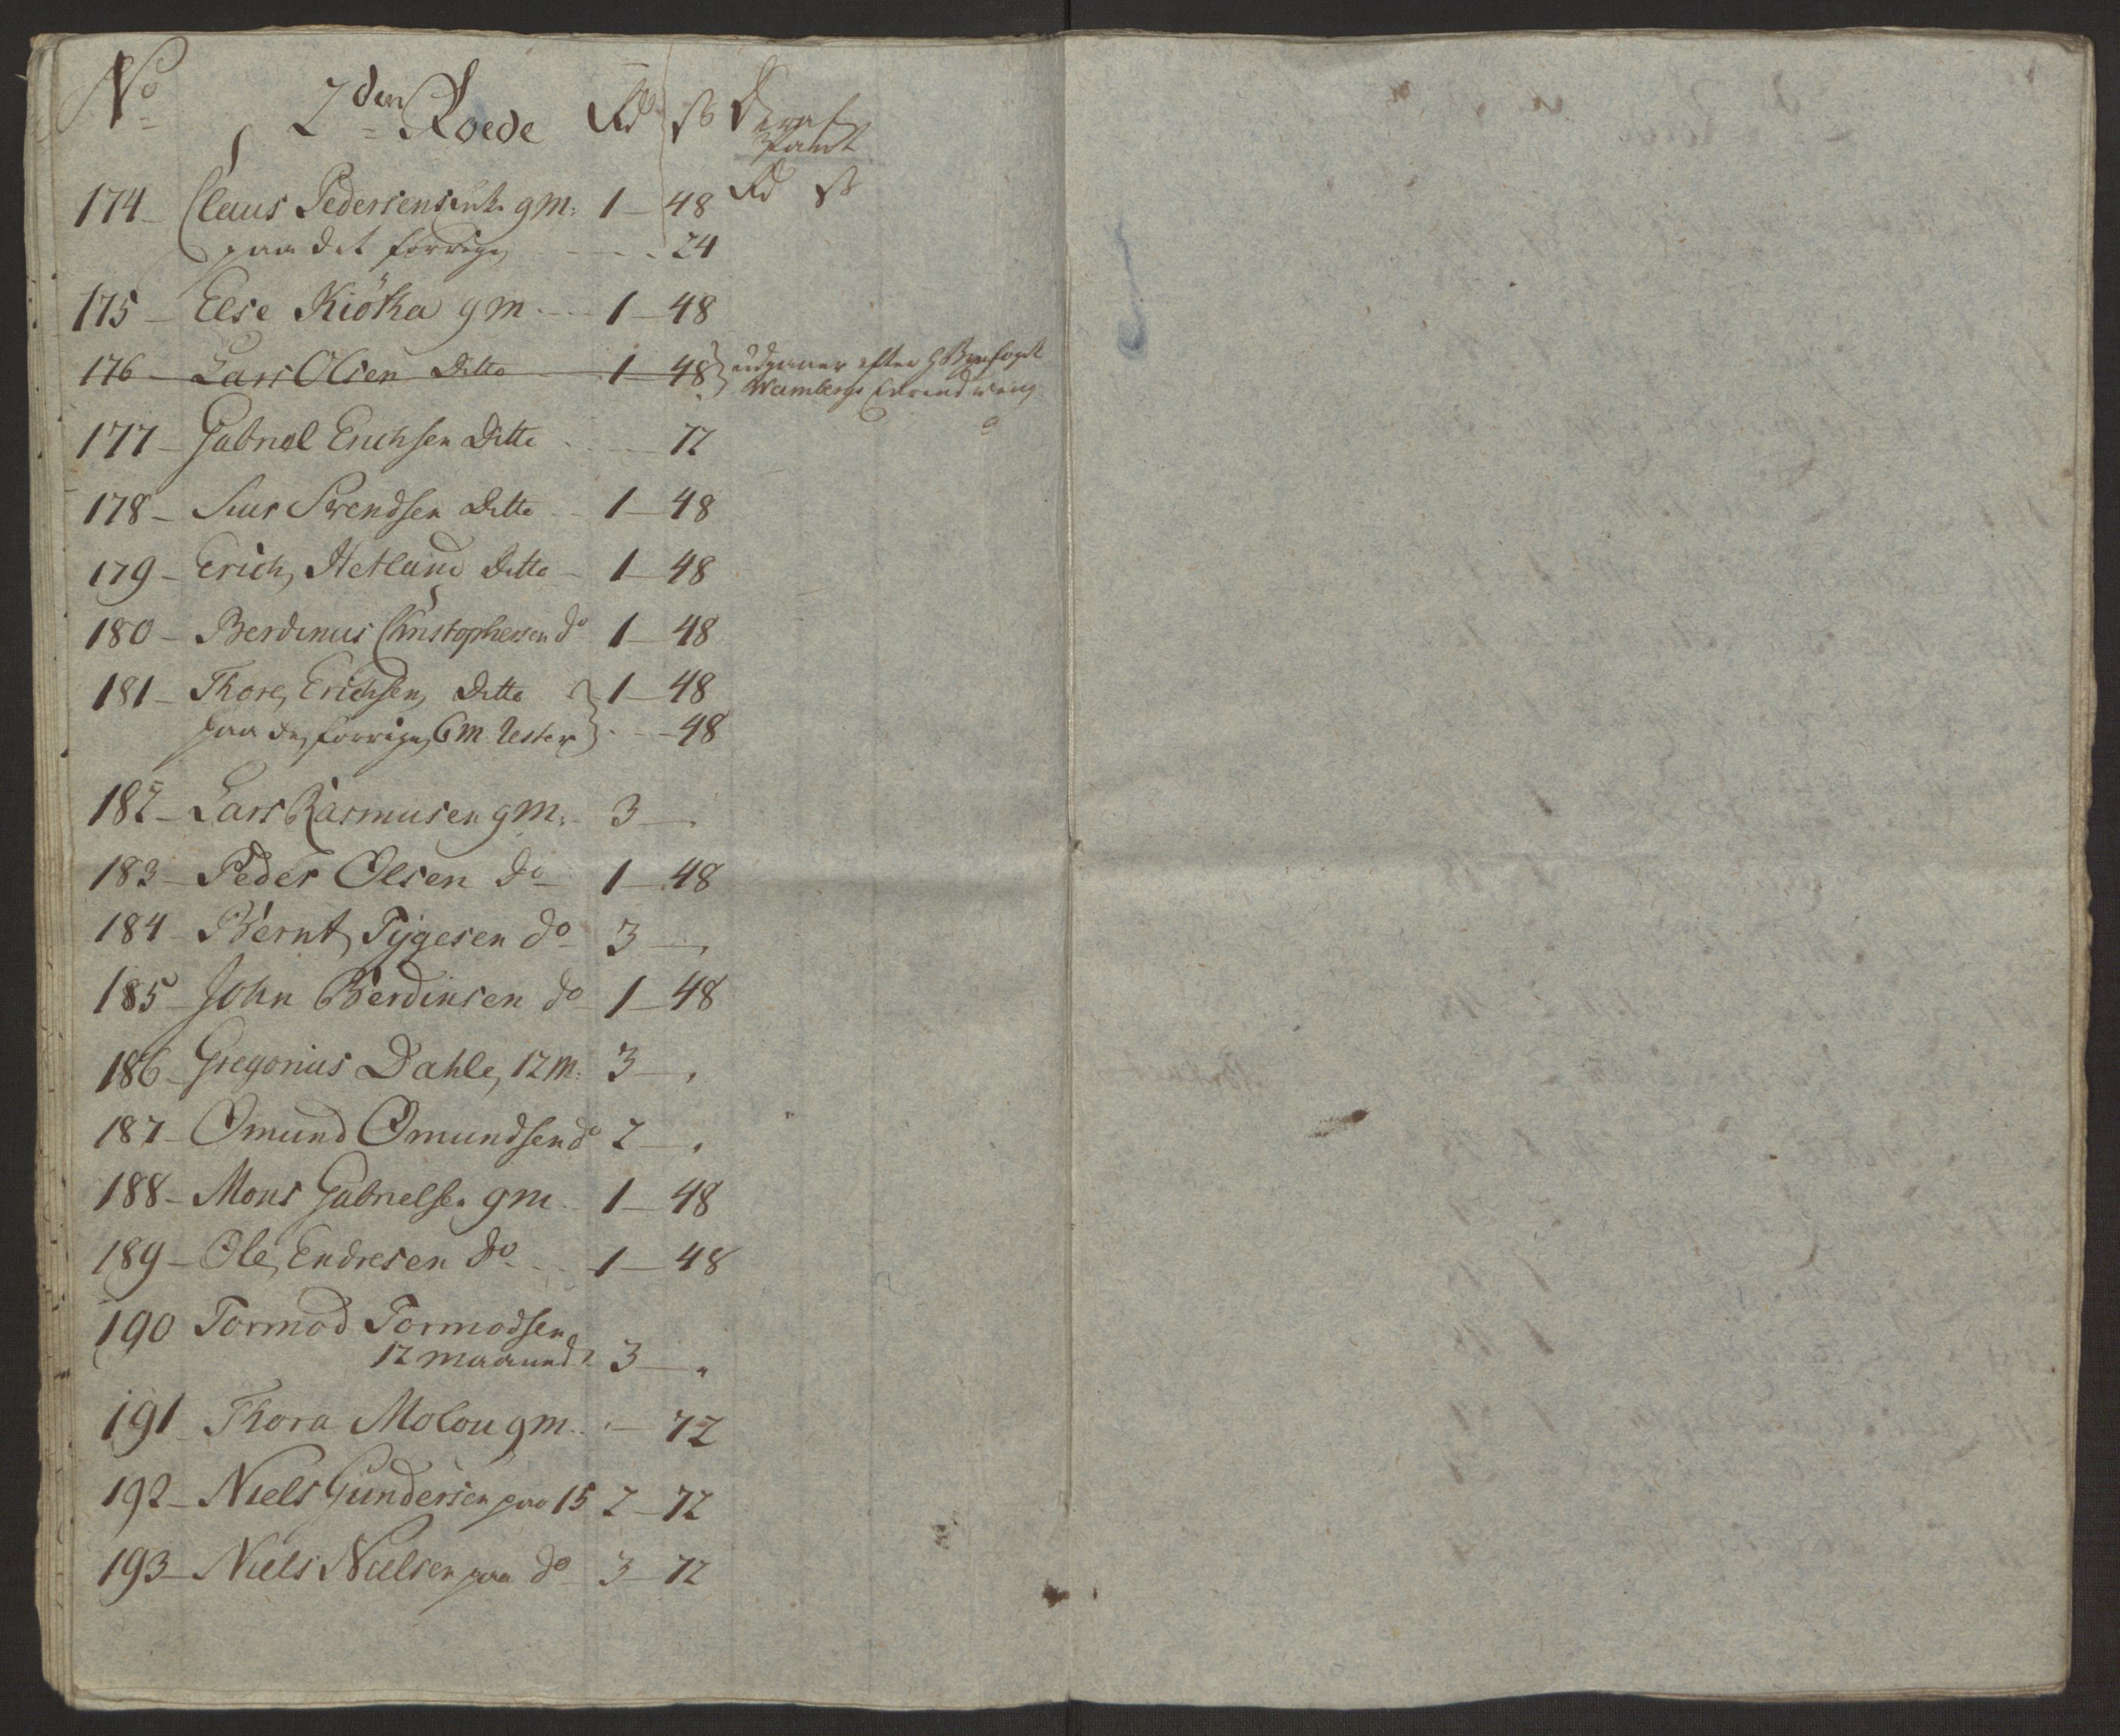 No 2den Roede Rd ß Deraf
Pant
Rd ß
174 Claus Pedersens Enke 9 M: 1 48
paa det forrige 24
175 Else Kiöka 9 M 1 48
176 Lars Olsen Ditto 1 48 udgaaer efter H Byefogt
Wambergs
177 Gabriel Erichsen Ditto 72
178 Siur Svendsen Ditto 1 48
179 Erich Hetland Ditto 1 48
180 Berdinus Christophersen do 1 48
181 Thore Erichsen Ditto 1 48
paa de forrige 6 M Rester 48
182 Lars Rasmusen 9 M: 3 "
183 Peder Olsen do 1 48
184 Bernt Tÿgesen do 3 "
185 John Berdinsen do 1 48
186 Gregorius Dahle, 12 M: 3 "
187 Omund Omundsen do 2 "
188 Mons Gabrielsen 9 M 1 48
189 Ole Endresen do 1 48
190 Tormod Tormodsen
12 Maaned 3 "
191 Thora Molou 9 M " 72
192 Niels Gundersen paa 15 2 72
193 Niels Nielsen paa do 3 72